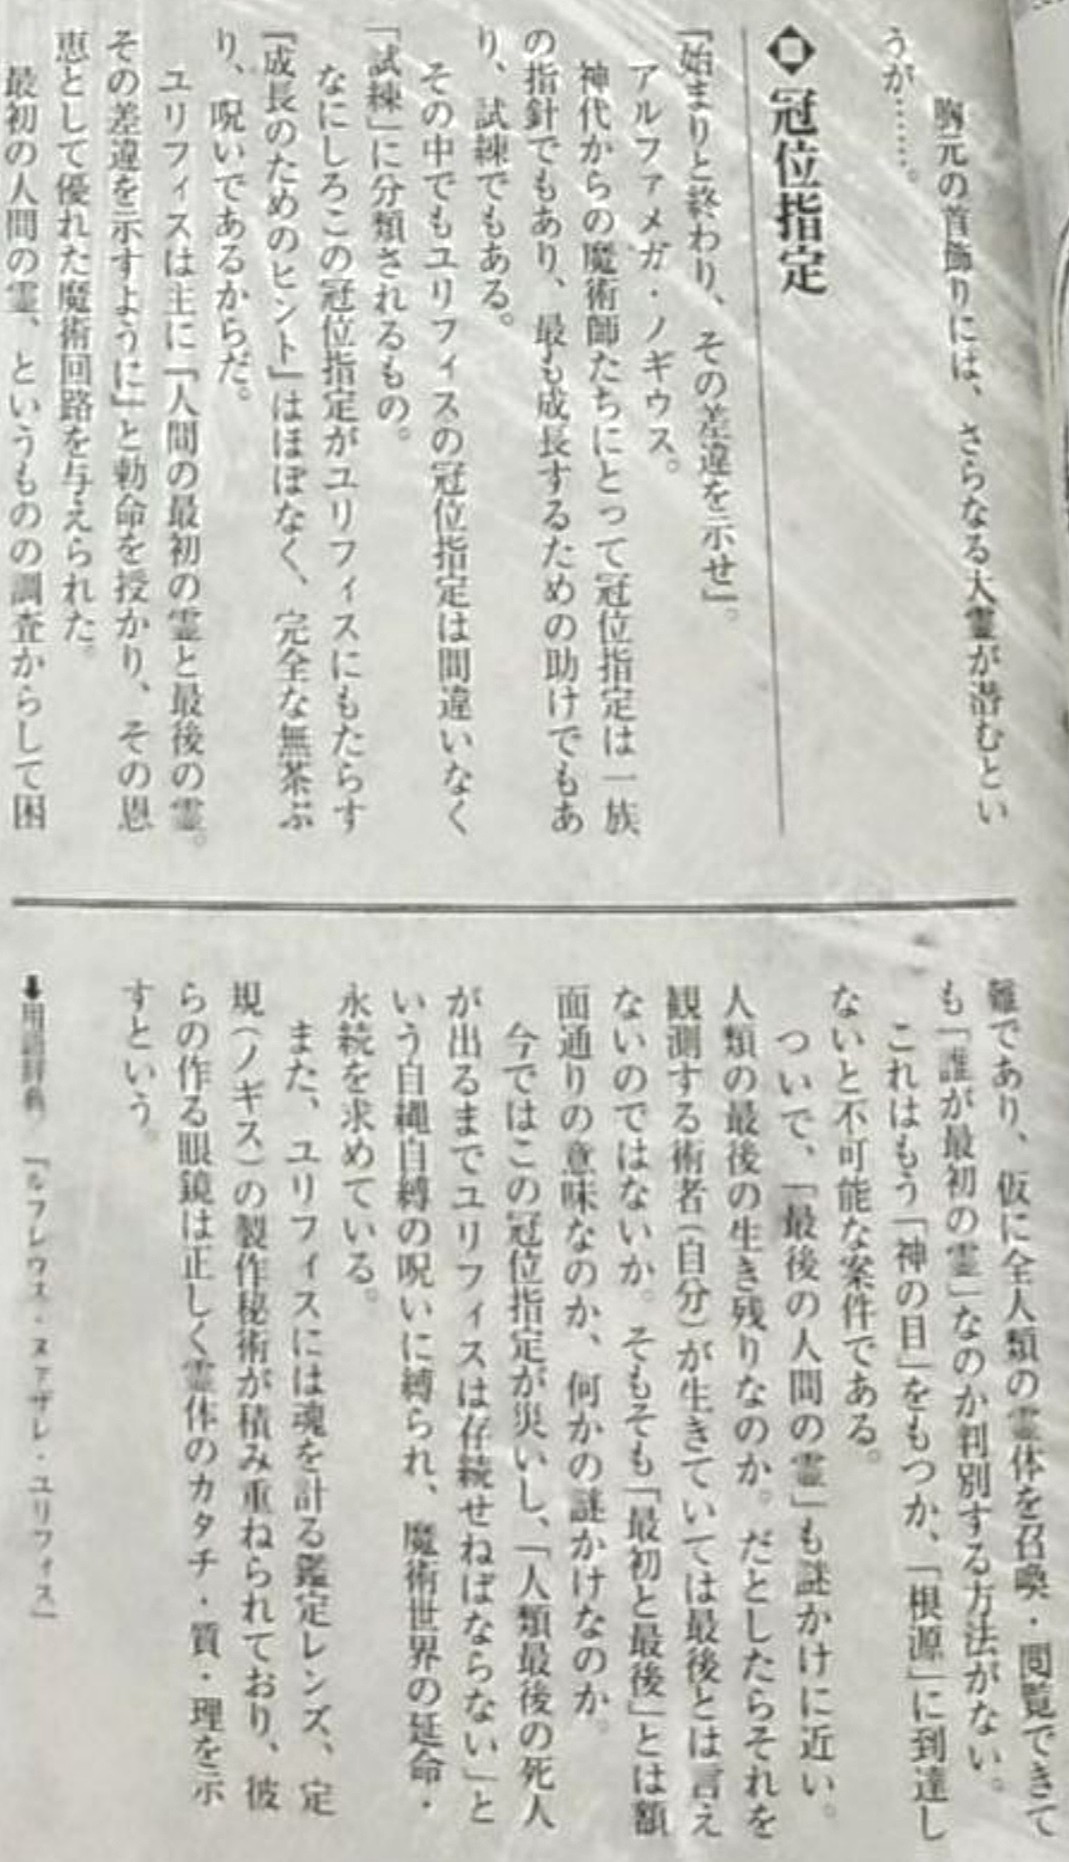 胸元の首飾りには、さらなる大霊が潜むとい
うが……。
冠位指定
「始まりと終わり、その差違を示せ」。
アルファメガ・ノギウス。
神代からの魔術師たちにとって冠位指定は一族
の指針でもあり、最も成長するための助けでもあ
り、試練でもある。
その中でもユリフィスの冠位指定は間違いなく
「試練」に分類されるもの。
なにしろこの冠位指定がユリフィスにもたらす
「成長のためのヒント」はほぼなく、完全な無茶ぶ
り、呪いであるからだ。
ユリフィスは主に「人間の最初の霊と最後の霊。
その差違を示すように」と勅命を授かり、その恩
恵として優れた魔術回路を与えられた。
最初の人間の霊、というものの調査からして困
難であり、仮に全人類の霊体を召喚・閲覧できて
も「誰が最初の霊」なのか判別する方法がない。
これはもう「神の目」をもつか、「根源」に到達し
ないと不可能な案件である。
ついで、「最後の人間の霊」も謎かけに近い。
人類の最後の生き残りなのか。だとしたらそれを
観測する術者(自分)が生きていては最後とは言え
ないのではないか。そもそも「最初と最後」とは額
面通りの意味なのか、何かの謎かけなのか。
今ではこの冠位指定が災いし、「人類最後の死人
が出るまでユリフィスは存続せねばならない」と
いう自縄自縛の呪いに縛られ、魔術世界の延命・
永続を求めている。
また、ユリフィスには魂を計る鑑定レンズ、定
現(ノギス)の製作秘術が積み重ねられており、彼
らの作る眼鏡は正しく霊体のカタチ・質・理を示
すという。
⬇用語辞典「ルフレウス・ヌァザレ・ユリフィス」